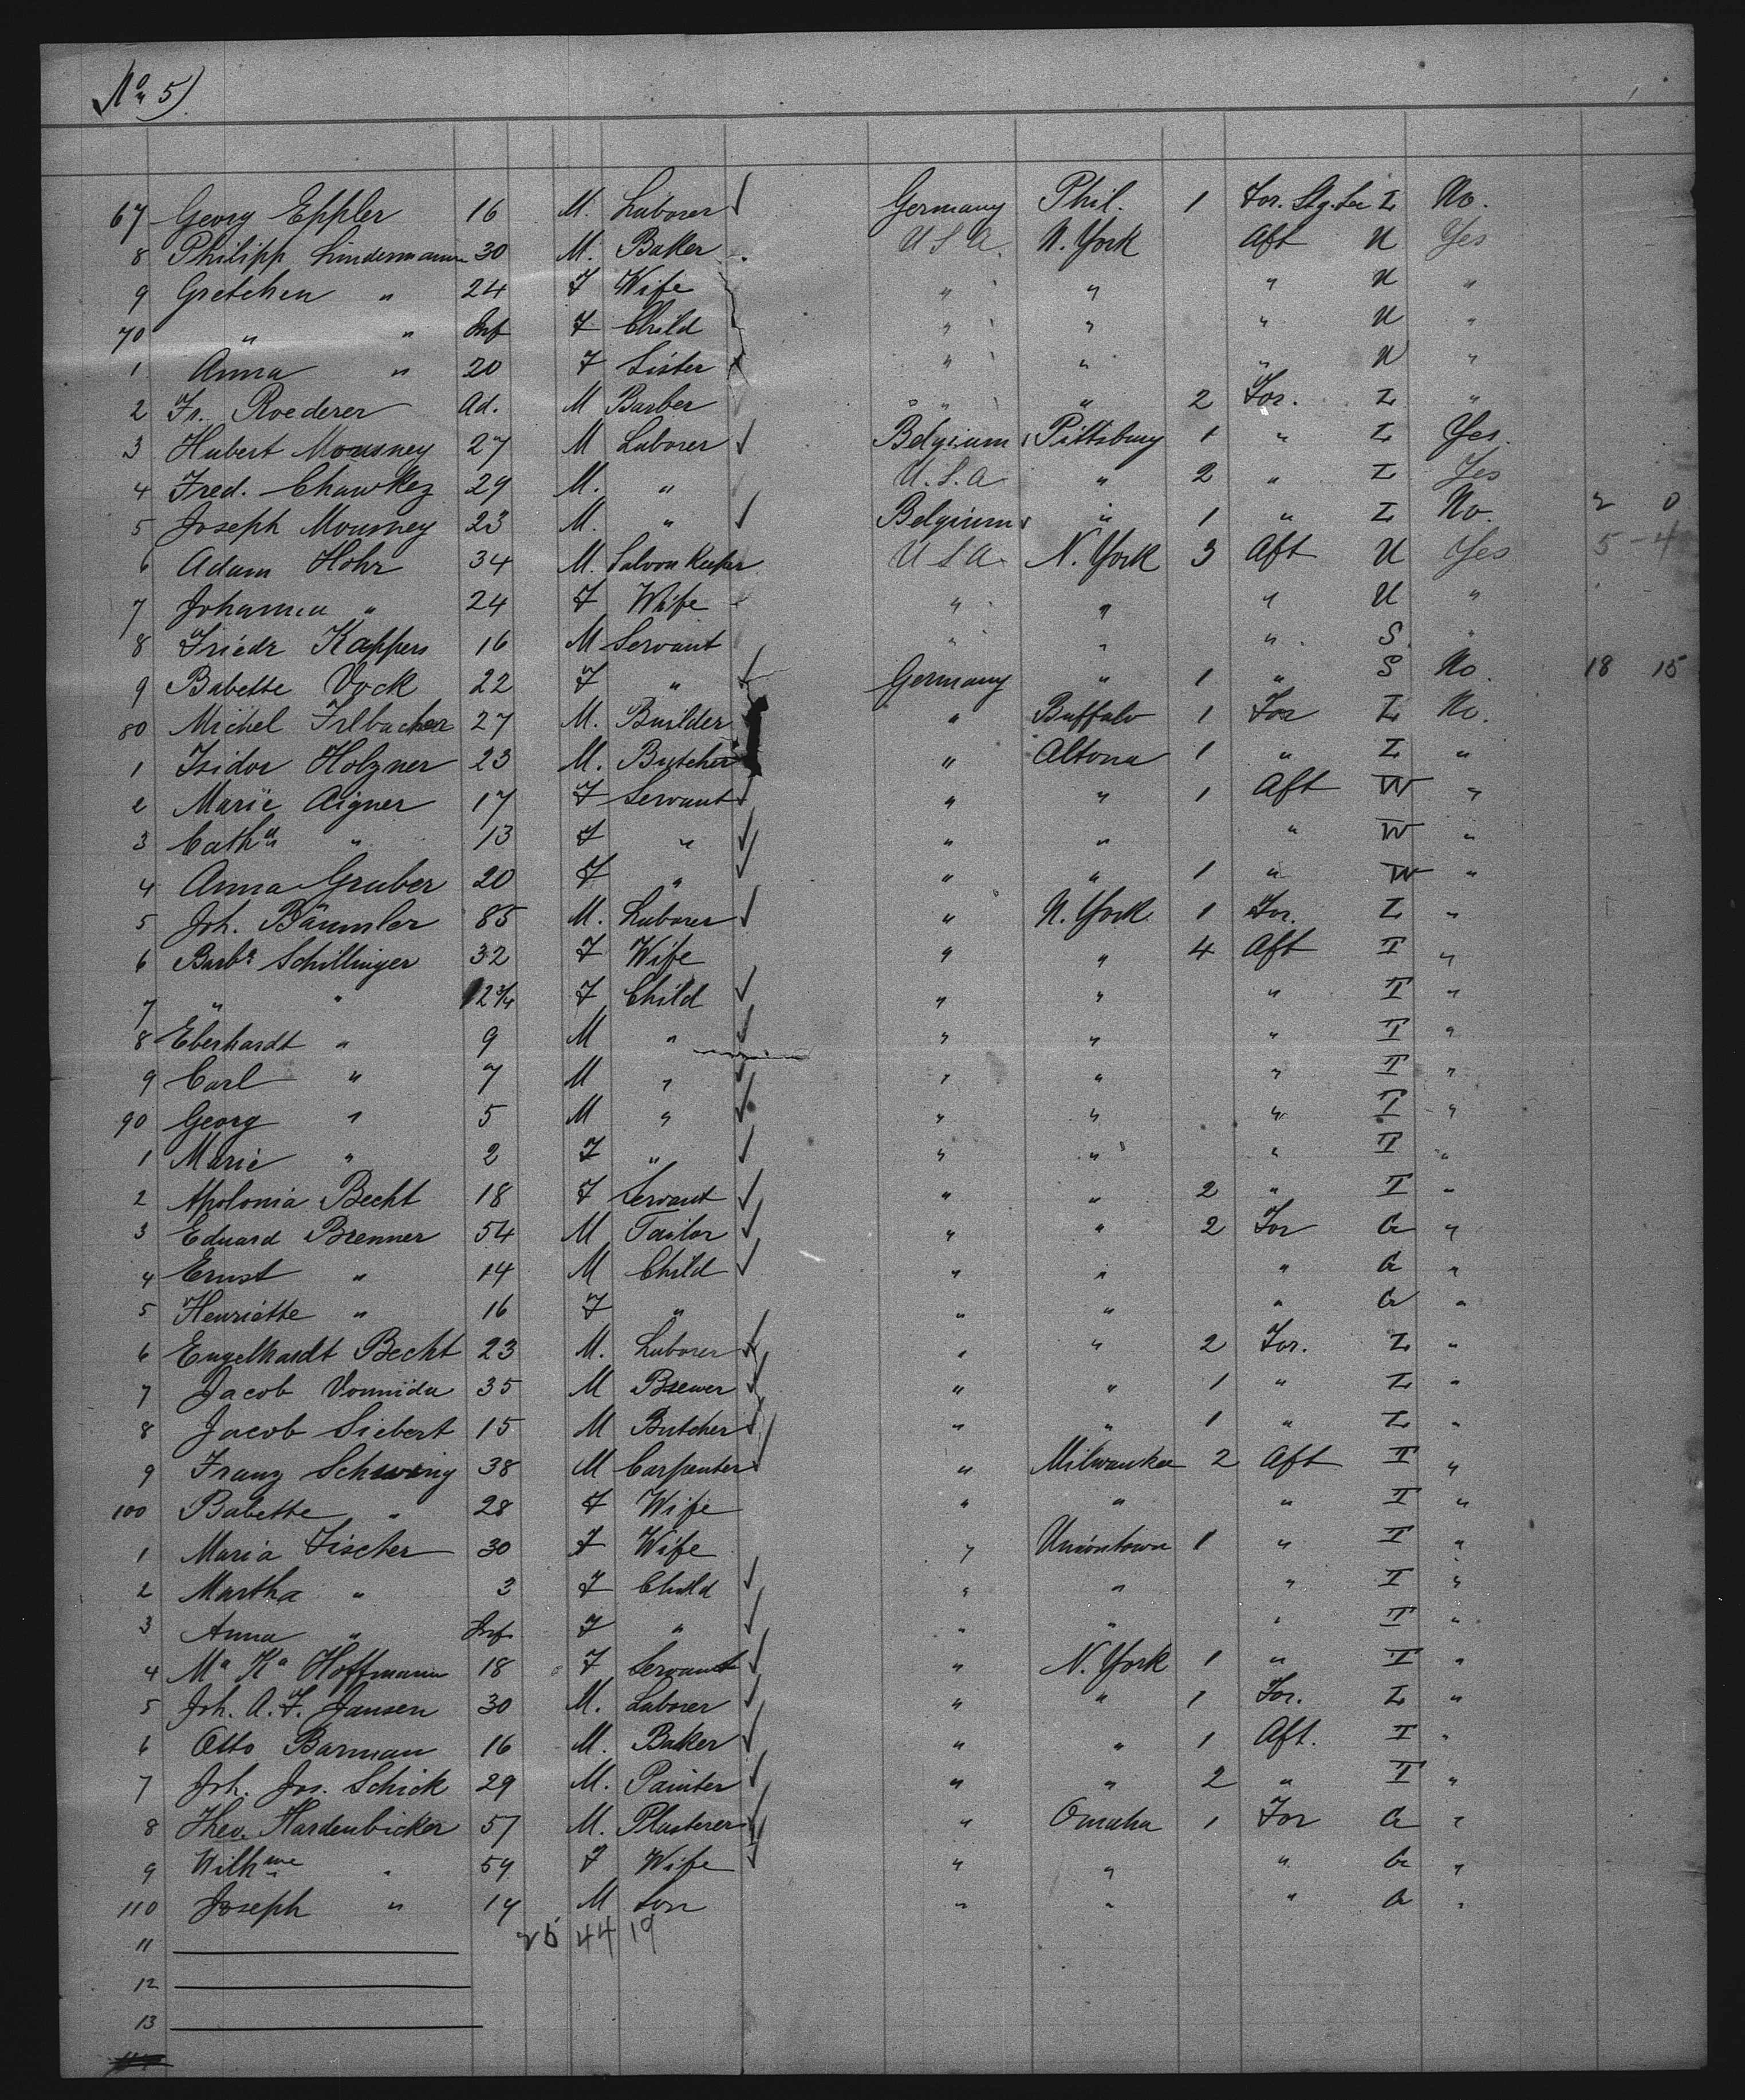 No 5)
67 Georg Eppler 16 M. Laborer Germany Phil. 1 For. Stg. L No.
8 Philipp Lindermann 30 M. Baker U S A. N. York Aft U Yes
9 Gretchen " 24 F Wife " " " U "
70 " " Inf F Child " " " U "
1 Anna " 20 F Sister " " " U "
2 Fr. Roederer Ad. M Barber " " 2 For. L "
3 Hubert Mousney 27 M Laborer Belgium Pittsburg 1 " L Yes.
4 Fred. Chawkez 29 M. " U.S.A " 2 " L Yes
5 Joseph Mousney 23 M. " Belgium " 1 " L No. 2 0
6 Adam Hohr 34 M. Saloon Keeper U S A. N. York 3 Aft U Yes 5 - 4
7 Johanna " 24 F Wife " " " U "
8 Friedr Kappers 16 M Servant " " " S "
9 Babette Vock 22 F " Germany " 1 " S No. 18 15
80 Michel Irlbacher 27 M. Builder " Buffalo 1 For L No.
1 Isidor Holzner 23 M. Butcher " Altona 1 " L "
2 Marie Aigner 17 F Servant " " 1 Aft W "
3 Catha " 13 F " " " " W "
4 Anna Gruber 20 F " " " 1 " W "
5 Joh. Bäumler 85 M. Laborer " N. York 1 For. L "
6 Barba Schillinger 32 F Wife " " 4 Aft T "
7 " " F Child " " " T "
8 Eberhardt " 9 M " " " " T "
9 Carl " 7 M " " " " T "
90 Georg " 5 M " " " " T "
1 Marie " 2 F " " " " T "
2 Apolonia Becht 18 F Servant " " 2 " T "
3 Eduard Brenner 54 M Tailor " " 2 For G "
4 Ernst " 14 M Child " " " G "
5 Henriette " 16 F " " " " G "
6 Engelhardt Becht 23 M. Laborer " " 2 For. L "
7 Jacob 35 M Brewer " " 1 " L "
8 Jacob Siebert 15 M Butcher " " 1 " L "
9 Franz Schwing 38 M Carpenter " Milwaukee 2 Aft T "
100 Babette " 28 F Wife " " " T "
1 Maria Fischer 30 F Wife " Uniontown 1 " T "
2 Martha " 3 F Child " " " T "
3 Anna " Inf. F " " " " T "
4 Ma Ka Hoffmann 18 F Servant " N. York 1 " T "
5 Joh. A. F. Jansen 30 M. Laborer " " 1 For. L "
6 Otto Barman 16 M. Baker " " 1 Aft. T "
7 Joh. Jos. Schick 29 M. Painter " " 2 " T "
8 Theo. Hardenbicker 57 M. Plasterer " Omaha 1 For G "
9 Wilhme " 59 F Wife " " " G "
110 Joseph " 14 M Son " " " G "
25 44 19
11
12
13